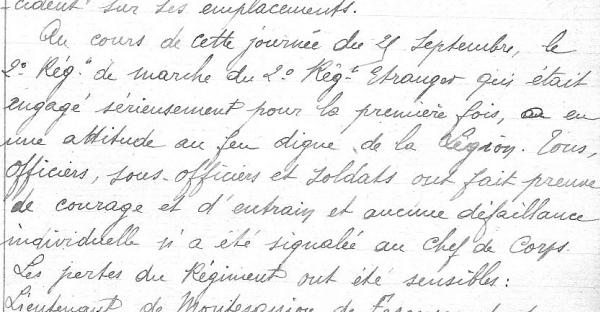 -cident" sur ses emplacements.
Au cours de cette journée du 25 Septembre, le
2º Rég.t de marche du 2º Rég.t Etranger qui était
engagé sérieusement pour la première fois, a eu
une attitude au feu digne de la Légion. Tous,
officiers, sous-officiers et soldats ont fait preuve
de courage et d'entrain et aucune défaillance
individuelle n'a été signalée au Chef de Corps.
Les pertes du Régiment ont été sensibles:
Lieutenant de